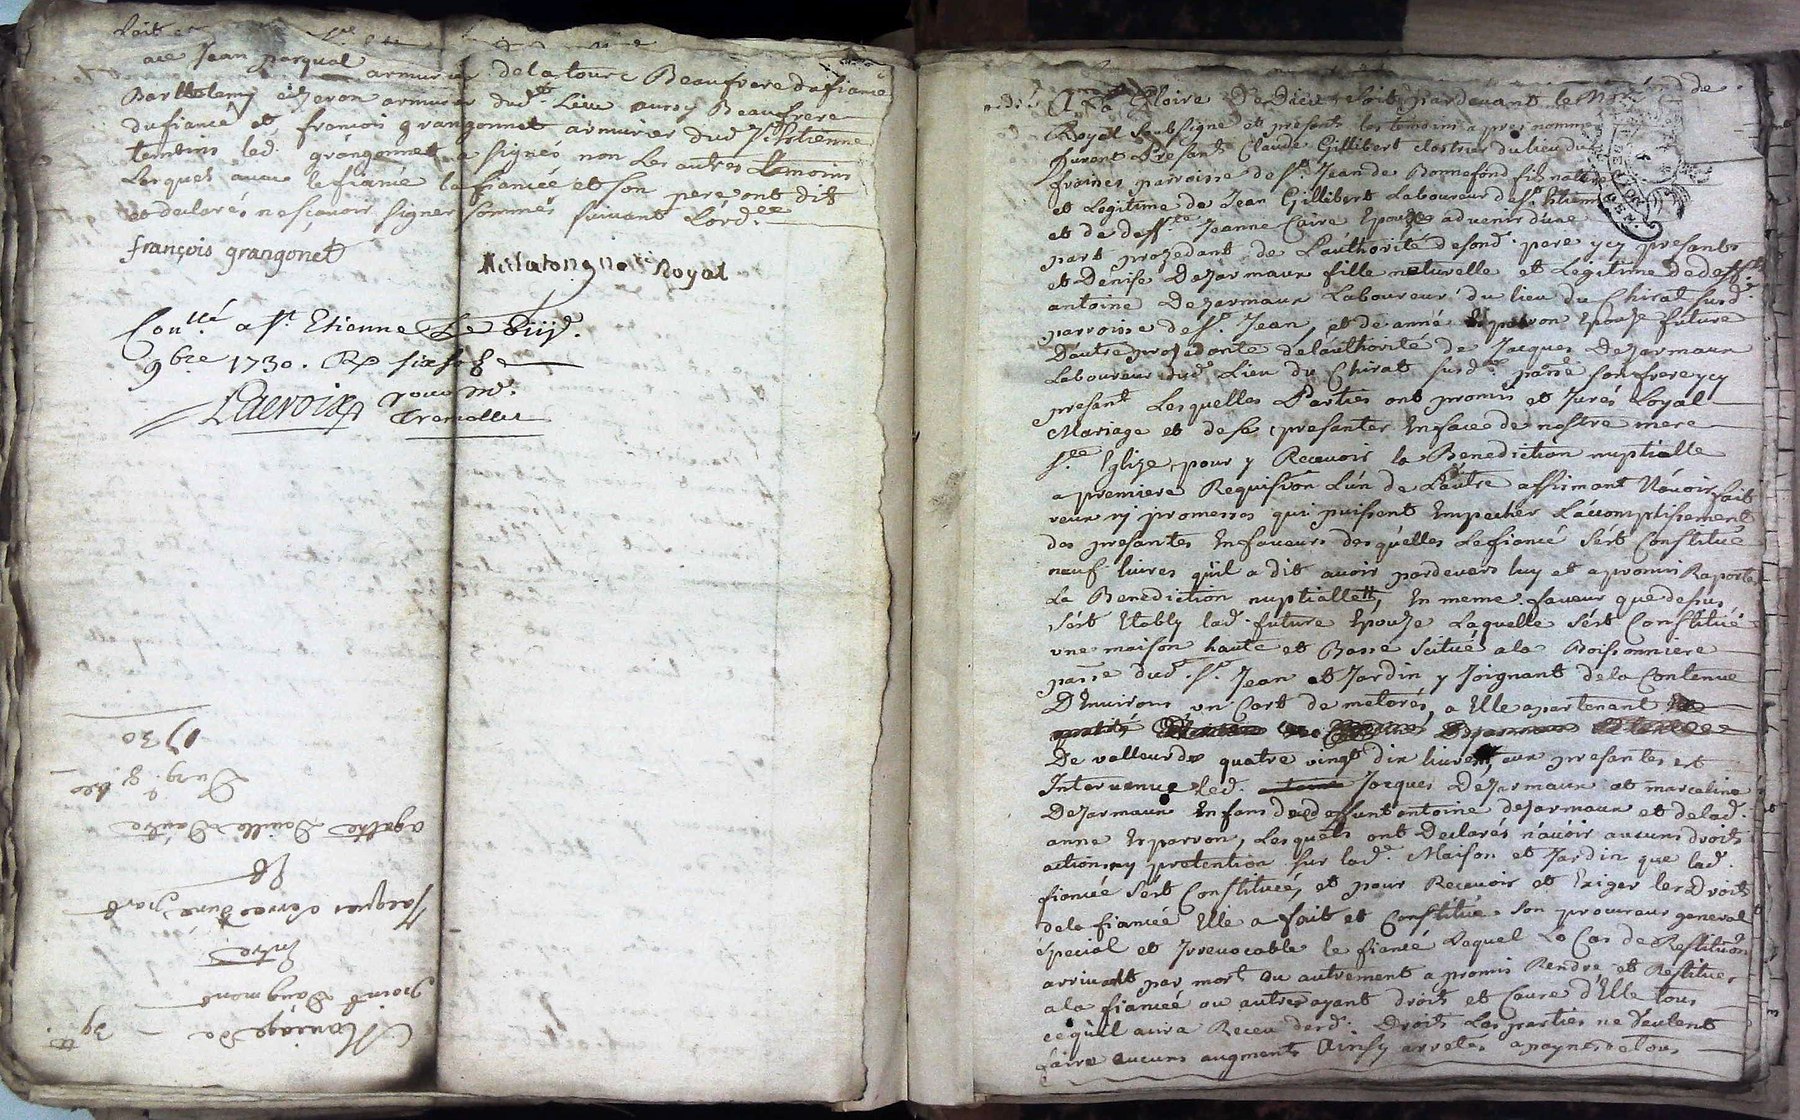 avec Jean parqual armurier de la tour Beaufrere dufiancé
Barthelemy eyzeron armurier dud.t Lieu aussy Beaufrere
dufiancé et françois grangonnet armurier dud St Estienne
temoins led. grangonnet a signés non Les autres temoins
Lesquels avec le fiancé la fiancée et son pere ont dit
et declarés ne sçavoir signer sommés suivant L'ord.ce
françois grangonet
no.re Royal
Con.llé a St Etienne Le
9bre 1730. R
Lacroix
1730
Du 9.e 8bre
agathe d'autre
&
Jacques d'une part
Entre
Mariage de
39
A La Gloire De Dieu, soit pardevant le No.re
Royal soubsigné et presents les temoins apres nommés
furent Presants Claude Gillibert clostrier du lieu du
fraines parroisse de St. Jean de Bonnefond fils naturel
et Legitime de Jean Gillibert Laboureur de St. Etienne
et de deff.te Jeanne Caire Epouze advenir d'une
part prozedant de L'authorité desond. pere ycy presants
et Denise Dezarmaux fille naturelle et Legitime de deff.t
antoine Dezarmaux Laboureur du lieu du Chirat susd.
parroisse de St. Jean, et de anné Esparron Epouze future
D'autre prozedante de l'authorité de Jacques Dezarmaux
Laboureur dud. Lieu du Chirat susd. parr.e son frere ycy
present Lesquelles Parties ont promis et Jurés Loyal
Mariage et de ses presanter En face de nostre mere
S.te Eglize, pour y Recevoir la Benediction nuptialle
a premiere Requision L'un de L'autre affirmant N'avoir fait
veux ny promesses qui puissent Empecher L'accomplissement
des presantes En faveurs desquelles Le fiancé s'est Constitué
neuf livres qu'il a dit avoir pardevers luy et a promis Raporter
La Benediction nuptialle, En meme faveur que dessus
s'est Etably lad. future Epouze Laquelle s'est Constitué
une maison haute et Basse scituée a la Boissonniere
par.e dud. St. Jean et Jardin y Joignant de la Contenue
D'Environs un Cart de meterés, a Elle apartenant
De valleur de quatre vingt dix livres, aux presantes est
Intervenue led. Jacques Dezarmaux et marceline
Dezarmaux Enfans dud deffunt antoine dezarmaux et de lad.
anne Esparron, Lesquels ont Declarés n'avoir aucuns droits
actions ny pretention sur lad. Maison et Jardin que lad.
fiancée s'est Constituée, et pour Recevoir et Exiger les Droits
de la fiancée Elle a fait et Constitué son procureur general
special et Irrevocable le fiancé Lequel Le Cas de Restitution
arrivant par mort ou autrement a promis Rendre et Restituer
a la fiancée ou autres ayant droit et Cause d'Elle tous
ce qu'il aura Receu desd. Droits Les parties ne veulent
faire aucuns augments Ainsy arretés a paynes de tous